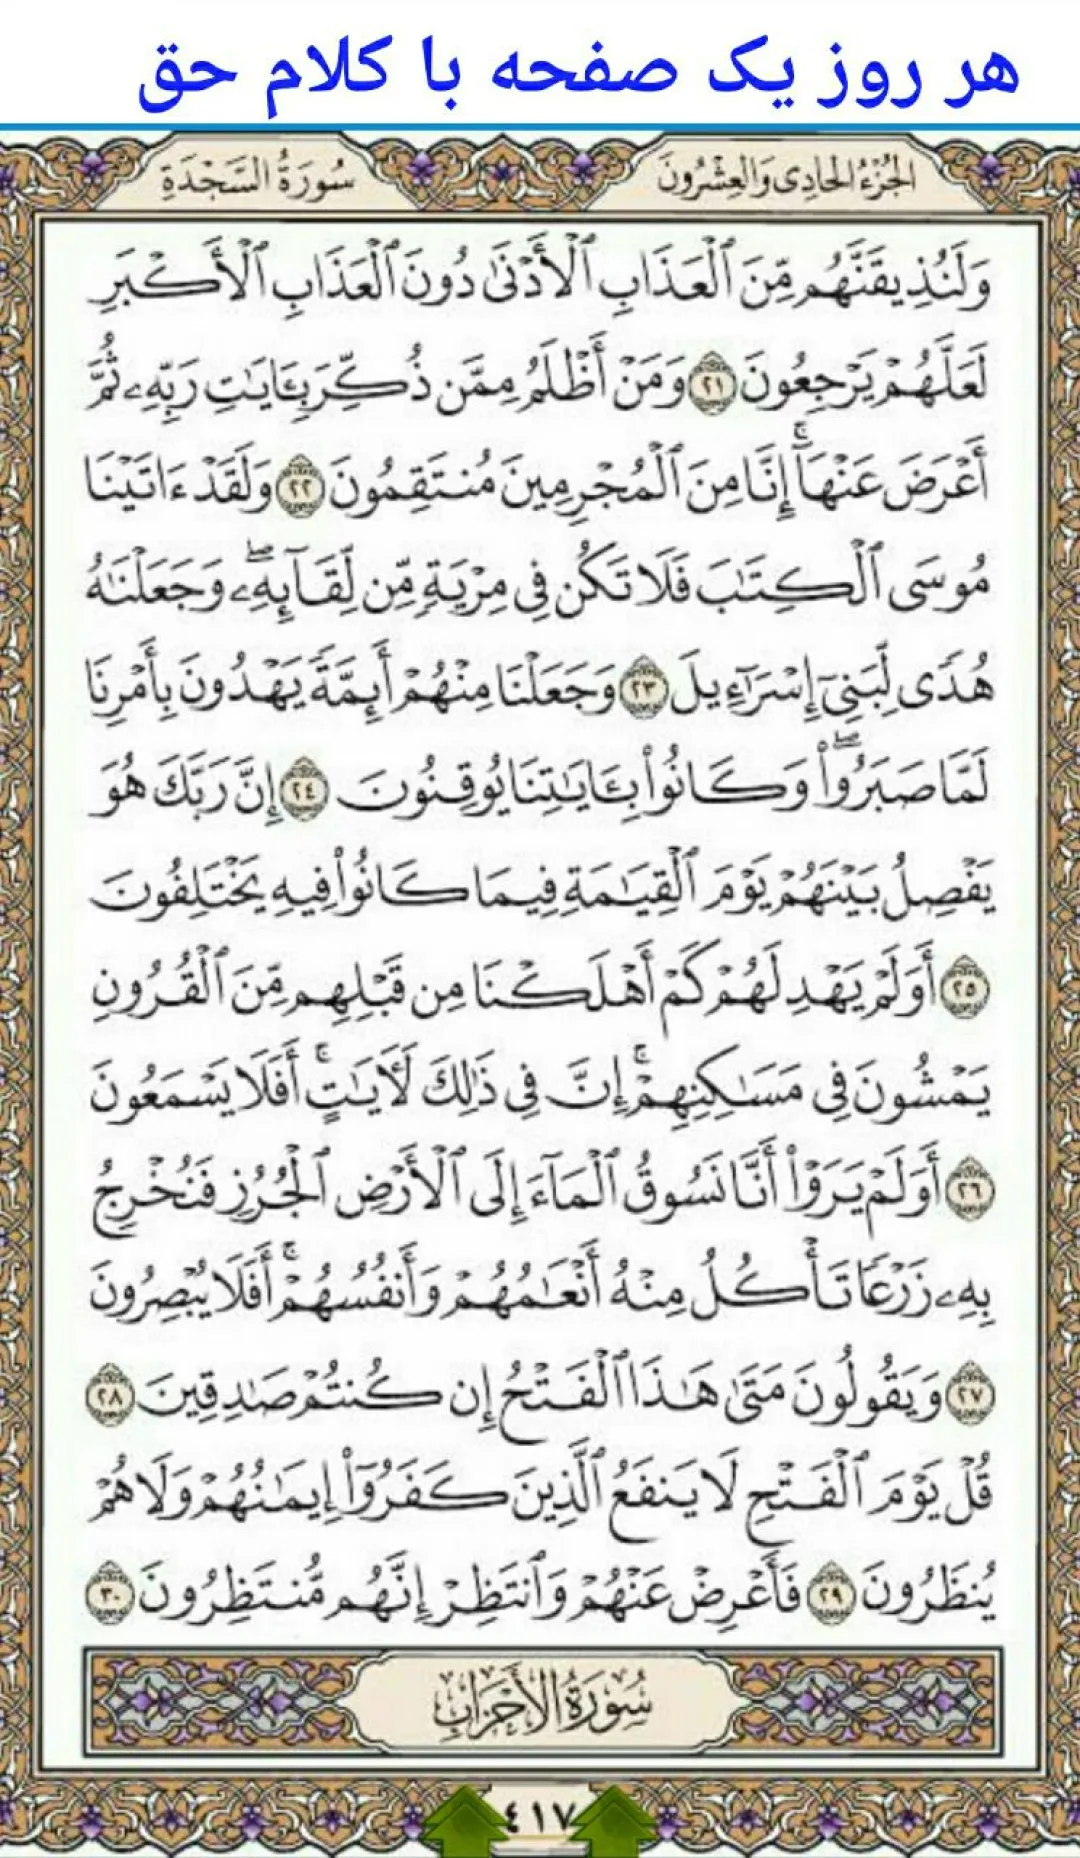 هر روز یک صفحه با کلام حق
الجُزْءُ الحَادِی وَالعِشْرُونَ
سُورَةُ السَّجْدَةِ
وَلَنُذِيقَنَّهُم مِّنَ ٱلْعَذَابِ ٱلْأَدْنَىٰ دُونَ ٱلْعَذَابِ ٱلْأَكْبَرِ
لَعَلَّهُمْ يَرْجِعُونَ ٢١ وَمَنْ أَظْلَمُ مِمَّن ذُكِّرَ بِـَٔايَٰتِ رَبِّهِۦ ثُمَّ
أَعْرَضَ عَنْهَآ ۚ إِنَّا مِنَ ٱلْمُجْرِمِينَ مُنتَقِمُونَ ٢٢ وَلَقَدْ ءَاتَيْنَا
مُوسَى ٱلْكِتَٰبَ فَلَا تَكُن فِى مِرْيَةٍ مِّن لِّقَآئِهِۦ ۖ وَجَعَلْنَٰهُ
هُدًى لِّبَنِىٓ إِسْرَٰٓءِيلَ ٢٣ وَجَعَلْنَا مِنْهُمْ أَئِمَّةً يَهْدُونَ بِأَمْرِنَا
لَمَّا صَبَرُوا۟ ۖ وَكَانُوا۟ بِـَٔايَٰتِنَا يُوقِنُونَ ٢٤ إِنَّ رَبَّكَ هُوَ
يَفْصِلُ بَيْنَهُمْ يَوْمَ ٱلْقِيَٰمَةِ فِيمَا كَانُوا۟ فِيهِ يَخْتَلِفُونَ
٢٥ أَوَلَمْ يَهْدِ لَهُمْ كَمْ أَهْلَكْنَا مِن قَبْلِهِم مِّنَ ٱلْقُرُونِ
يَمْشُونَ فِى مَسَٰكِنِهِمْ ۚ إِنَّ فِى ذَٰلِكَ لَـَٔايَٰتٍ ۚ أَفَلَا يَسْمَعُونَ
٢٦ أَوَلَمْ يَرَوْا۟ أَنَّا نَسُوقُ ٱلْمَآءَ إِلَى ٱلْأَرْضِ ٱلْجُرُزِ فَنُخْرِجُ
بِهِۦ زَرْعًا تَأْكُلُ مِنْهُ أَنْعَٰمُهُمْ وَأَنفُسُهُمْ ۚ أَفَلَا يُبْصِرُونَ
٢٧ وَيَقُولُونَ مَتَىٰ هَٰذَا ٱلْفَتْحُ إِن كُنتُمْ صَٰدِقِينَ ٢٨
قُلْ يَوْمَ ٱلْفَتْحِ لَا يَنفَعُ ٱلَّذِينَ كَفَرُوٓا۟ إِيمَٰنُهُمْ وَلَا هُمْ
يُنظَرُونَ ٢٩ فَأَعْرِضْ عَنْهُمْ وَٱنتَظِرْ إِنَّهُم مُّنتَظِرُونَ ٣٠
سُورَةُ الأَحْزَابِ
٤١٧